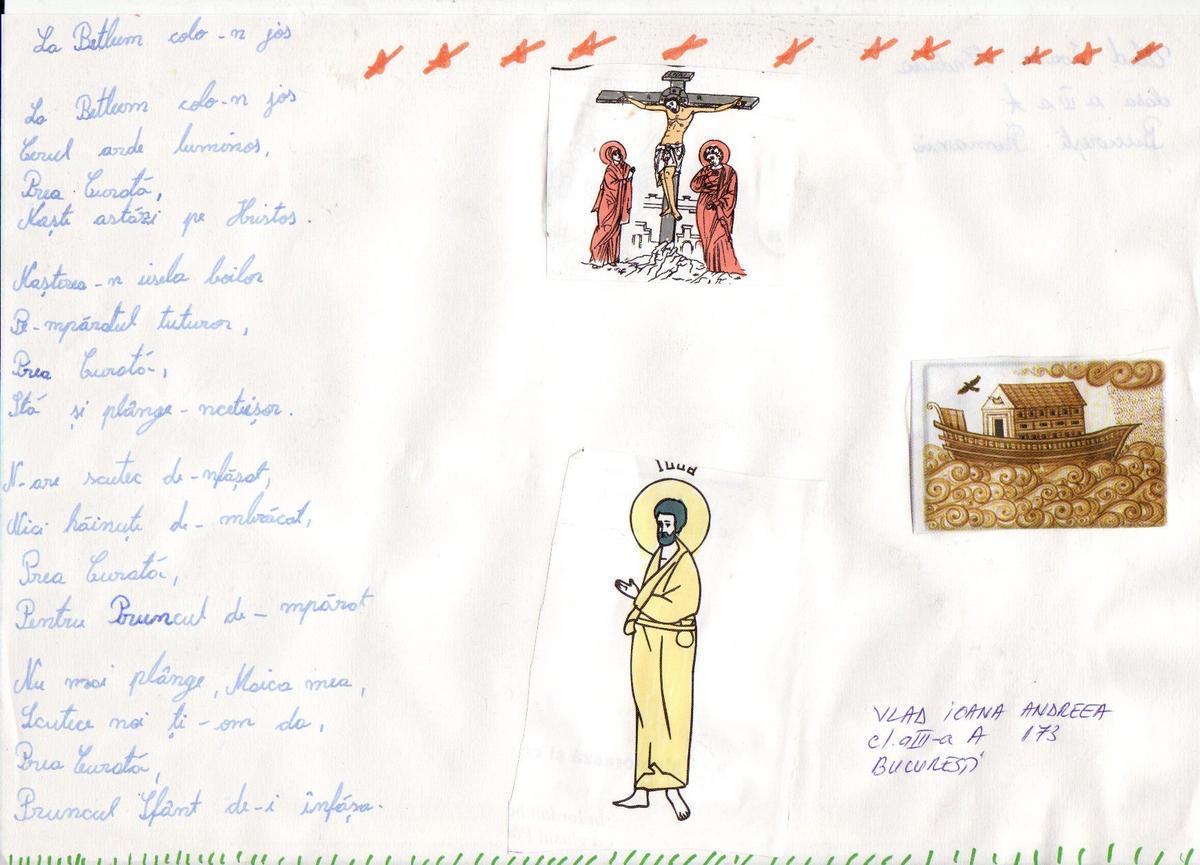 La Betleem colo-n jos
La Betleem colo-n jos
Cerul arde luminos,
Prea Curată,
Naște astăzi pe Hristos.
Nașterea-n iesla boilor
Pe-mpăratul tuturor,
Prea Curată,
Stă și plânge-ncetișor.
N-are scutec de-nfășat,
Nici hăinuțe de-mbrăcat,
Prea Curată,
Pentru Pruncul de-mpărat
Nu mai plânge, Maica mea,
Scutece noi ți-om da,
Prea Curată,
Pruncul Sfânt de-i înfășa.
VLAD IOANA ANDREEA
cl. a III-a A 173
BUCUREȘTI